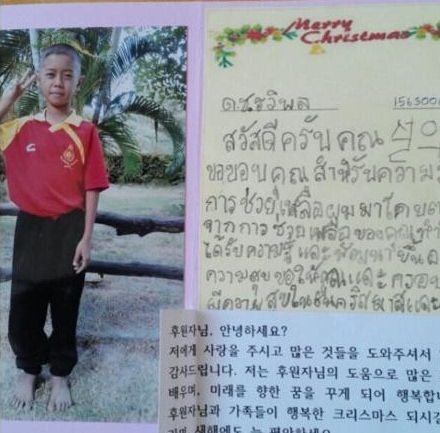 Merry
Christmas
ด.ช.ชวิพล
สวัสดีครับ คุณ
ขอขอบคุณ สำหรับความ
การช่วยเหลือผมมาโดย
จากการช่วยเหลือของคุณ
ได้รับความรู้และพัฒนา
ความสุขขอให้คุณและครอบ
มีความสุขในวันคริสมาสและ
후원자님, 안녕하세요?
저에게 사랑을 주시고 많은 것들을 도와주셔서
감사드립니다. 저는 후원자님의 도움으로 많은
배우며, 미래를 향한 꿈을 꾸게 되어 행복합니
후원자님과 가족들이 행복한 크리스마스 되시길
새해에도 늘 평안하세요